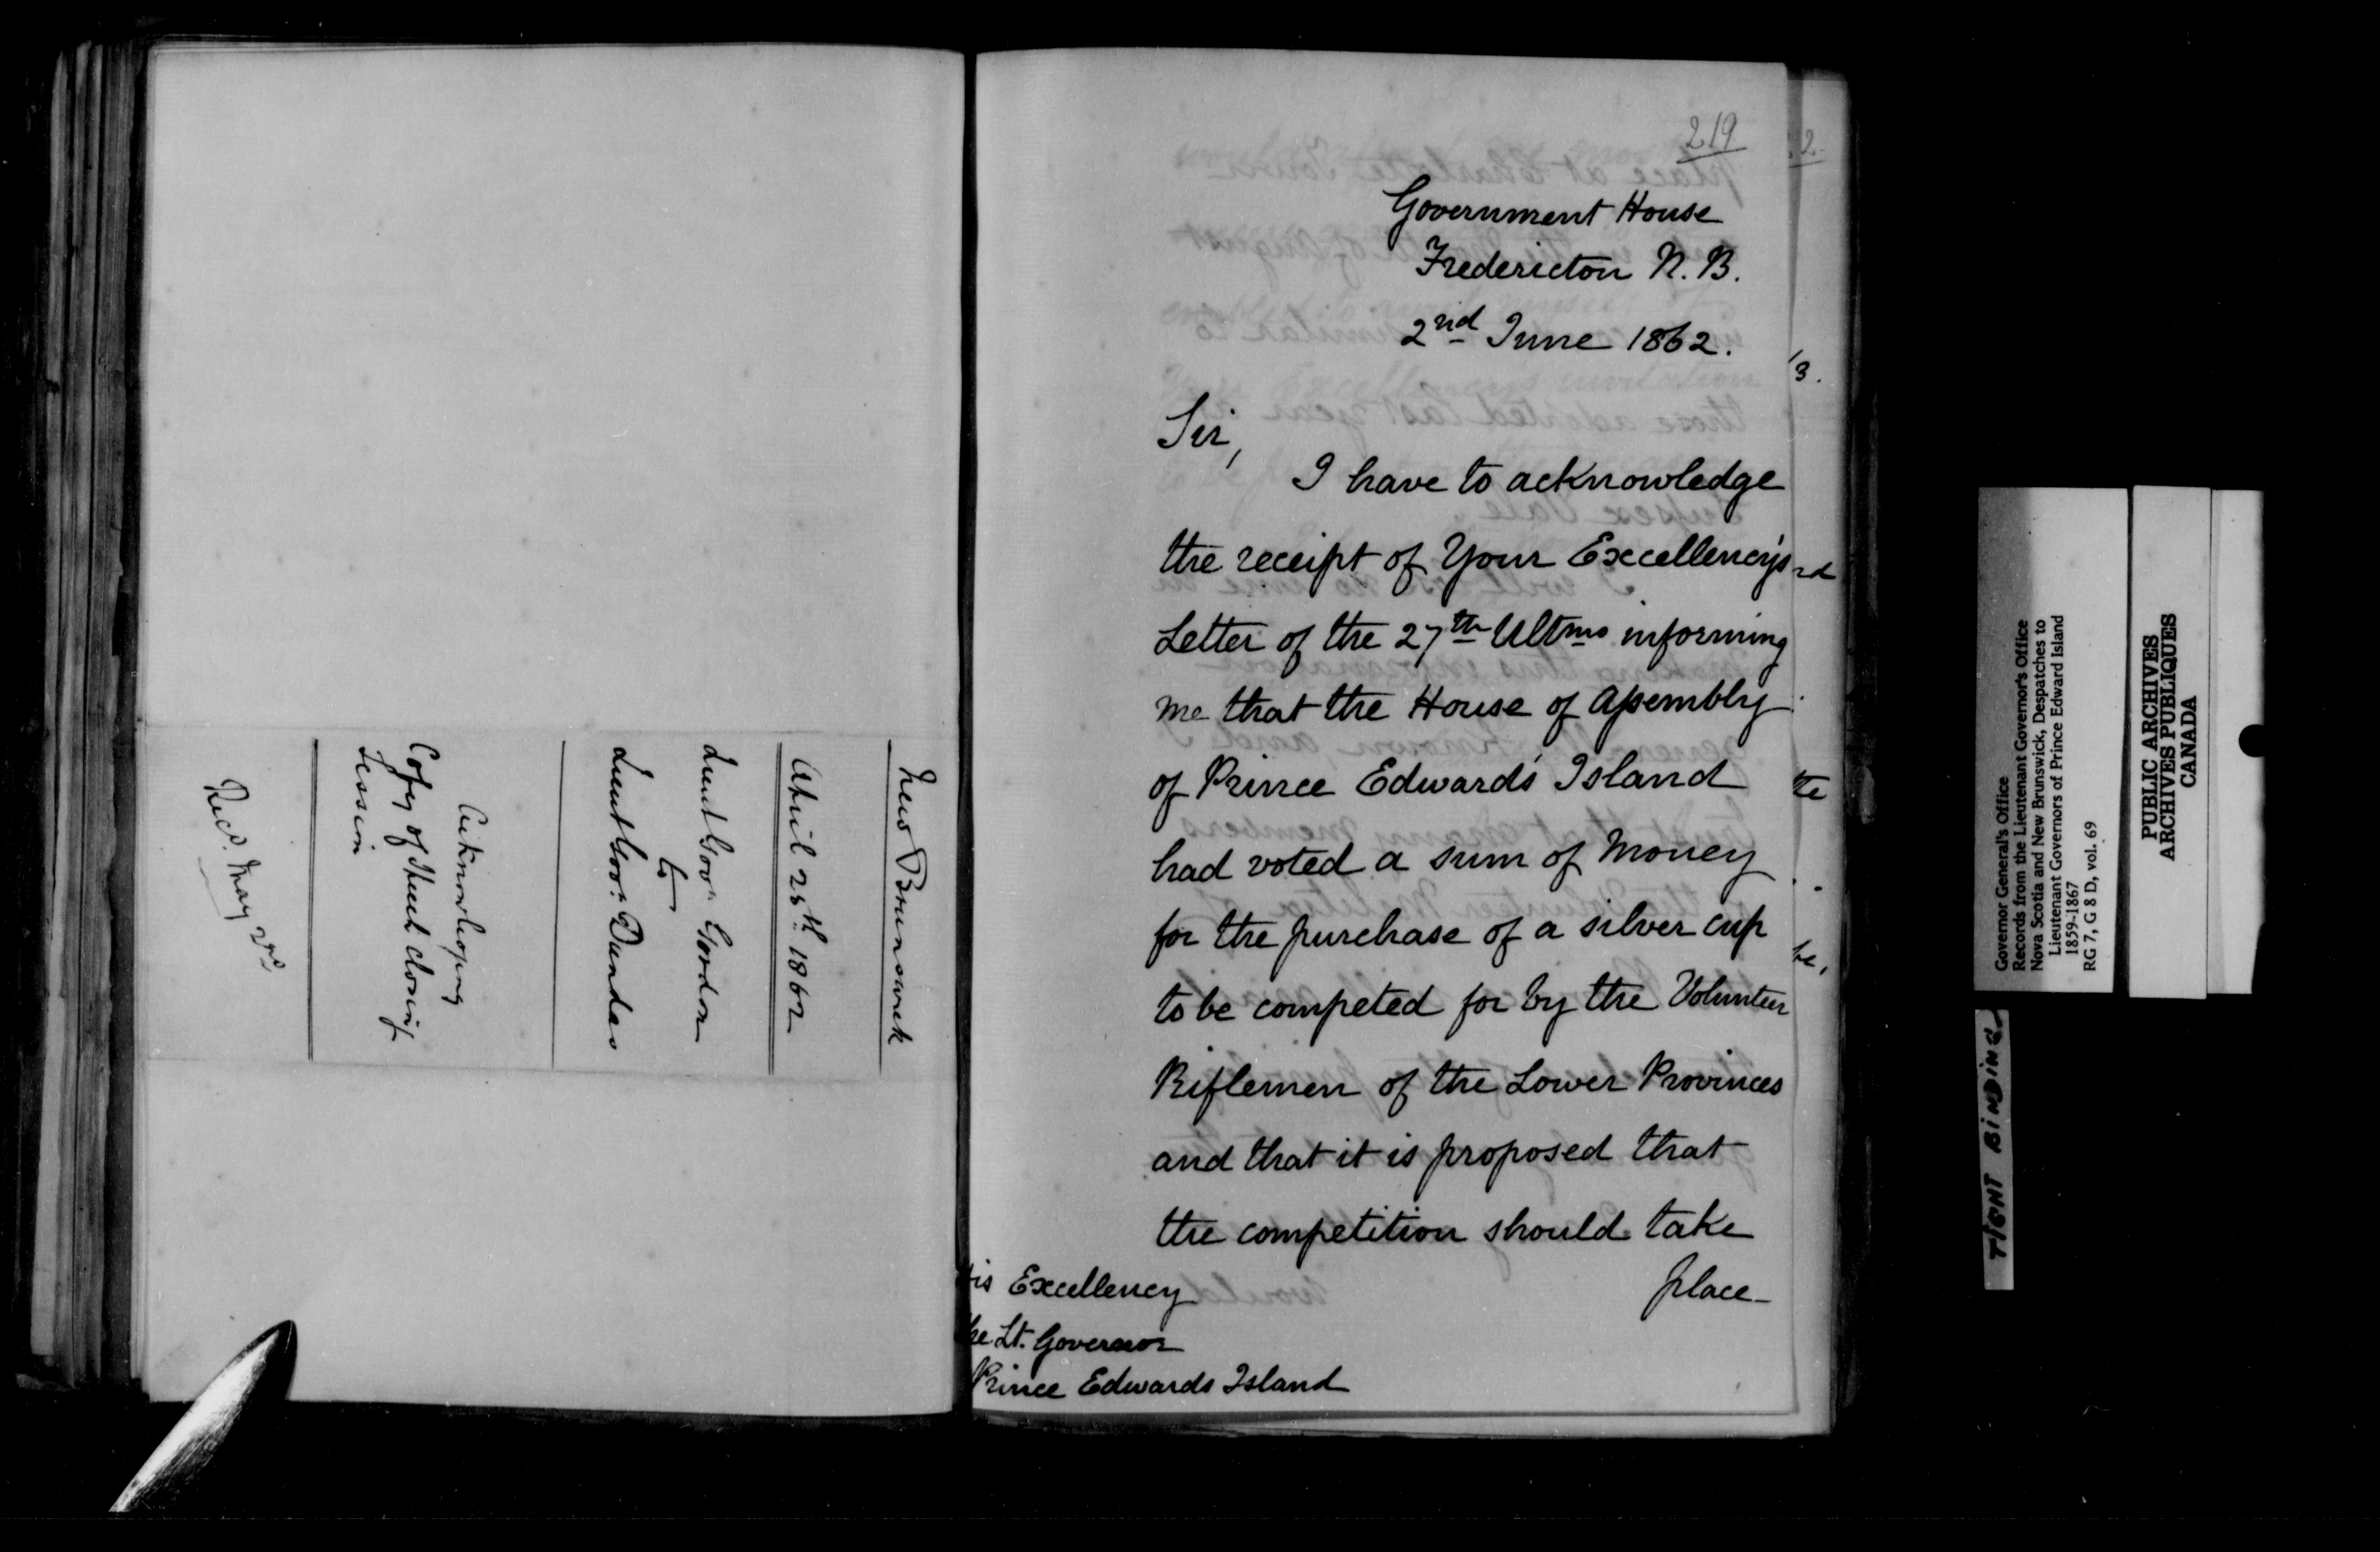 New Brunswick
April 25th. 1862
Lieut Govr. Gordon
to
Lieut Govr. Dundas
Acknowledging
Copy of Speech closing
Session
Recd. May
219
Government House
Fredericton N. B.
2nd June 1862.
Sir,
I have to acknowledge
the receipt of Your Excellency's
Letter of the 27th Ultmo informing
me that the House of Assembly
of Prince Edward's Island
had voted a sum of Money
for the purchase of a silver cup
to be competed for by the Volunteer
Riflemen of the Lower Provinces
and that it is proposed that
the competition should take
place
His Excellency
The Lt. Governor
Prince Edwards Island
Governor General's Office
Records from the Lieutenant Governor's Office
Nova Scotia and New Brunswick, Despatches to
Lieutenant Governors of Prince Edward Island
1859-1867
RG 7, G 8 D, vol. 69
PUBLIC ARCHIVES
ARCHIVES PUBLIQUES
CANADA
TIGHT BINDING